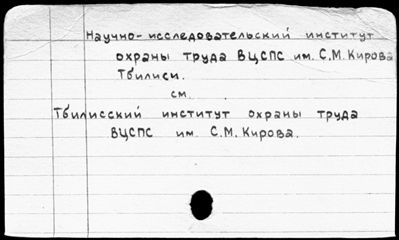 Научно-исследовательский институт
охраны труда ВЦСПС им. С.М.Кирова
Тбилиси.
см.
Тбилисский институт охраны труда
ВЦСПС им. С.М.Кирова.